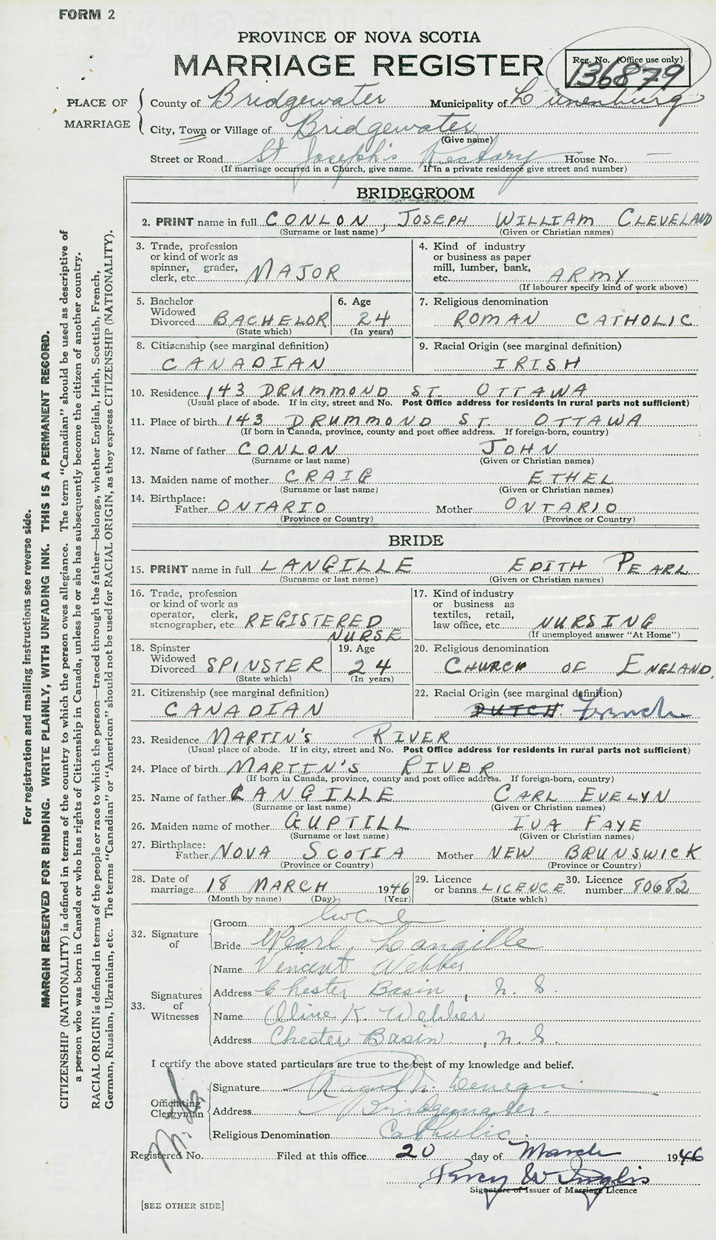 FORM 2
PROVINCE OF NOVA SCOTIA
MARRIAGE REGISTER
Reg. No. (Office use only)
136879
PLACE OF MARRIAGE
County of Bridgewater Municipality of Lunenburg
City, Town or Village of Bridgewater
(Give name)
Street or Road St Joseph's Rectory House No. —
(If marriage occurred in a Church, give name. If in a private residence give street and number)
BRIDEGROOM
2. PRINT name in full CONLON, JOSEPH WILLIAM CLEVELAND
(Surname or last name) (Given or Christian names)
3. Trade, profession or kind of work as spinner, grader, clerk, etc. MAJOR
4. Kind of industry or business as paper mill, lumber, bank, etc. ARMY
(If labourer specify kind of work above)
5. Bachelor Widowed Divorced BACHELOR
(State which)
6. Age 24
(In years)
7. Religious denomination
ROMAN CATHOLIC
8. Citizenship (see marginal definition)
CANADIAN
9. Racial Origin (see marginal definition)
IRISH
10. Residence 143 DRUMMOND ST. OTTAWA
(Usual place of abode. If in city, street and No. Post Office address for residents in rural parts not sufficient)
11. Place of birth 143 DRUMMOND ST. OTTAWA
(If born in Canada, province, county and post office address. If foreign-born, country)
12. Name of father CONLON JOHN
(Surname or last name) (Given or Christian names)
13. Maiden name of mother CRAIG ETHEL
(Surname or last name) (Given or Christian names)
14. Birthplace: Father ONTARIO Mother ONTARIO
(Province or Country) (Province or Country)
BRIDE
15. PRINT name in full LANGILLE EDITH PEARL
(Surname or last name) (Given or Christian names)
16. Trade, profession or kind of work as operator, clerk, stenographer, etc. REGISTERED NURSE
17. Kind of industry or business as textiles, retail, law office, etc. NURSING
(If unemployed answer "At Home")
18. Spinster Widowed Divorced SPINSTER
(State which)
19. Age 24
(In years)
20. Religious denomination
CHURCH OF ENGLAND.
21. Citizenship (see marginal definition)
CANADIAN
22. Racial Origin (see marginal definition)
DUTCH French
23. Residence MARTIN'S RIVER
(Usual place of abode. If in city, street and No. Post Office address for residents in rural parts not sufficient)
24. Place of birth MARTIN'S RIVER
(If born in Canada, province, county and post office address. If foreign-born, country)
25. Name of father LANGILLE CARL EVELYN
(Surname or last name) (Given or Christian names)
26. Maiden name of mother GUPTILL IVA FAYE
(Surname or last name) (Given or Christian names)
27. Birthplace: Father NOVA SCOTIA Mother NEW BRUNSWICK
(Province or Country) (Province or Country)
28. Date of marriage 18 MARCH 1946
(Month by name) (Day) (Year)
29. Licence or banns LICENCE
(State which)
30. Licence number 80682
32. Signature of
Groom
Bride Pearl Langille
33. Signatures of Witnesses
Name Vincent Webber
Address Chester Basin, N.S.
Name Olive K. Webber
Address Chester Basin, N.S.
I certify the above stated particulars are true to the best of my knowledge and belief.
Officiating Clergyman
Signature
Address Bridgewater.
Religious Denomination Catholic
Registered No. Filed at this office 20 day of March 1946
Percy W Inglis
Signature of Issuer of Marriage Licence
[SEE OTHER SIDE]
For registration and mailing instructions see reverse side.
MARGIN RESERVED FOR BINDING. WRITE PLAINLY, WITH UNFADING INK. THIS IS A PERMANENT RECORD.
CITIZENSHIP (NATIONALITY) is defined in terms of the country to which the person owes allegiance. The term "Canadian" should be used as descriptive of
a person who was born in Canada or who has rights of Citizenship in Canada, unless he or she has subsequently become the citizen of another country.
RACIAL ORIGIN is defined in terms of the people or race to which the person—traced through the father—belongs, whether English, Irish, Scottish, French,
German, Russian, Ukrainian, etc. The terms "Canadian" or "American" should not be used for RACIAL ORIGIN, as they express CITIZENSHIP (NATIONALITY).